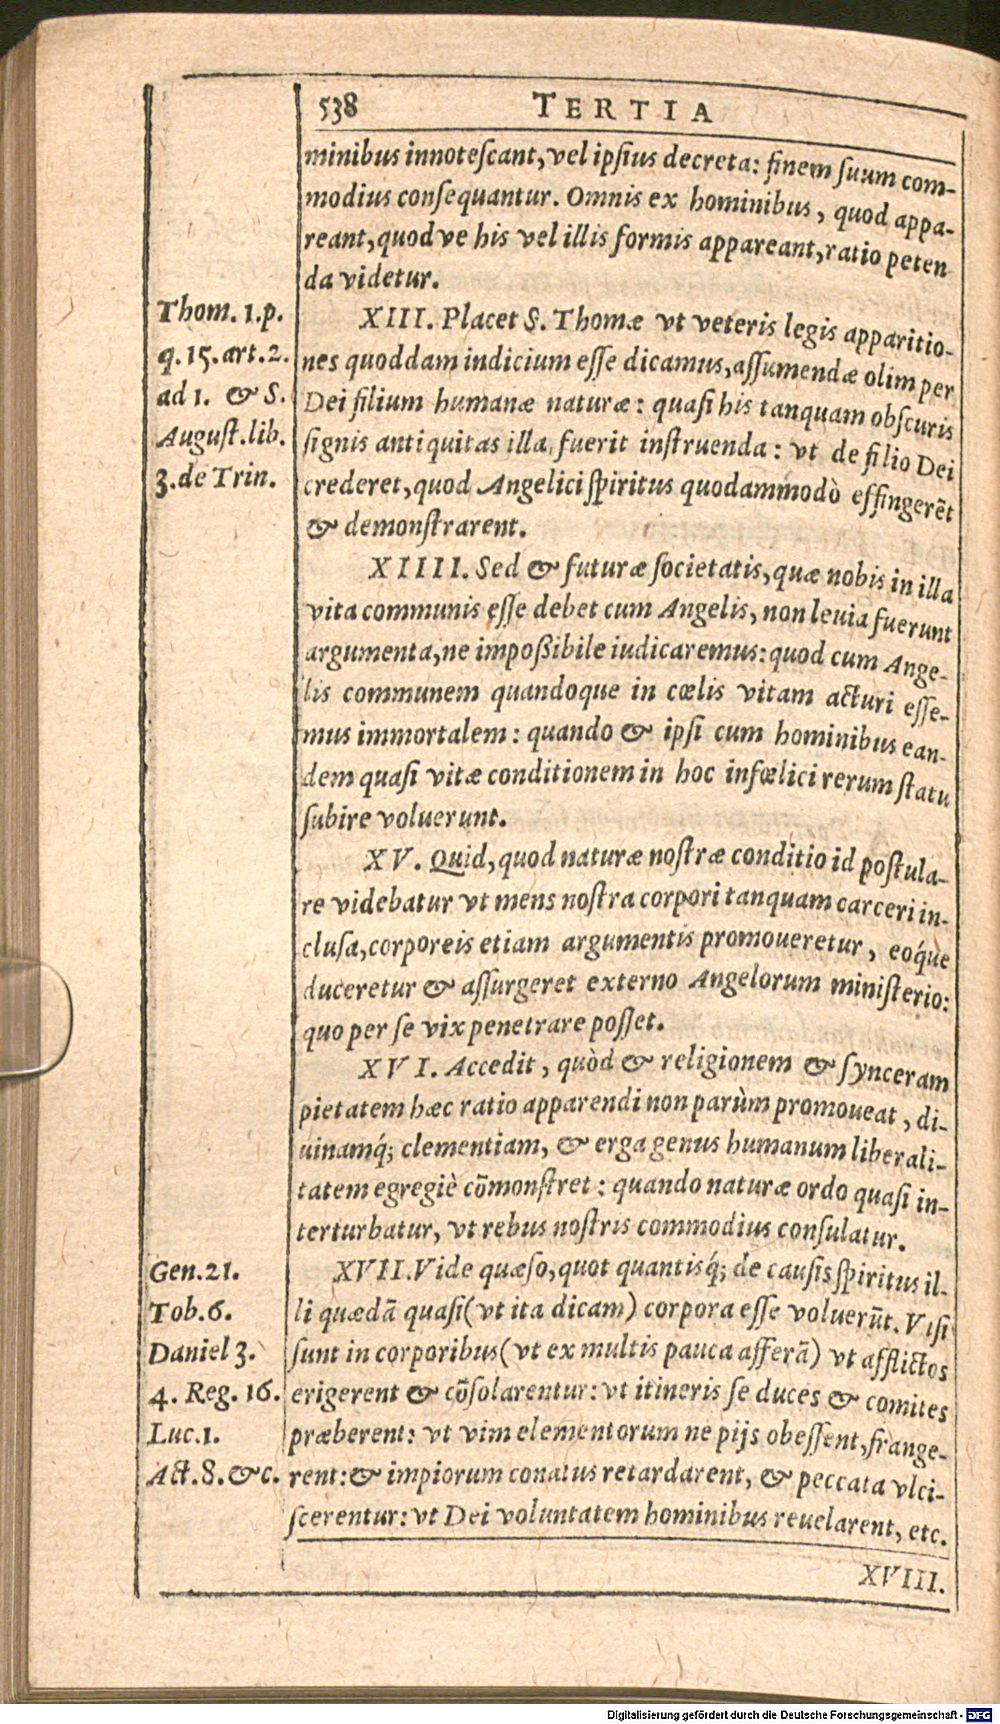 538 TERTIA
minibus innoteſcant, vel ipſius decreta: finem ſuum com-
modius conſequantur. Omnis ex hominibus, quod appa-
reant, quodve his vel illis formis appareant, ratio peten
da videtur.
Thom. 1.p.
q.15.art.2.
ad 1. & S.
Auguſt.lib.
3.de Trin.
XIII. Placet S. Thomæ vt veteris legis apparitio-
nes quoddam indicium eſſe dicamus, aſſumendæ olim per
Dei filium humanæ naturæ: quaſi his tanquam obſcuris
ſignis antiquitas illa, fuerit inſtruenda: vt de filio Dei
crederet, quod Angelici ſpiritus quodammodò effingerēt
& demonſtrarent.
XIIII. Sed & futuræ ſocietatis, quæ nobis in illa
vita communis eſſe debet cum Angelis, non leuia fuerunt
argumenta, ne impoßibile iudicaremus: quod cum Ange-
lis communem quandoque in cœlis vitam acturi eſſe-
mus immortalem: quando & ipſi cum hominibus ean-
dem quaſi vitæ conditionem in hoc infœlici rerum ſtatu
ſubire voluerunt.
XV. Quid, quod naturæ noſtræ conditio id poſtula-
re videbatur vt mens noſtra corpori tanquam carceri in-
cluſa, corporeis etiam argumentis promoueretur, eoq́ue
duceretur & aſſurgeret externo Angelorum miniſterio:
quo per ſe vix penetrare poſſet.
XVI. Accedit, quòd & religionem & ſynceram
pietatem hæc ratio apparendi non parùm promoueat, di-
uinamq́; clementiam, & erga genus humanum liberali-
tatem egregiè cōmonſtret: quando naturæ ordo quaſi in-
terturbatur, vt rebus noſtris commodius conſulatur.
Gen.21.
Tob.6.
Daniel 3.
4. Reg. 16.
Luc.1.
Act.8.&c.
XVII. Vide quæſo, quot quantisq́; de cauſis ſpiritus il-
li quædā quaſi (vt ita dicam) corpora eſſe voluerūt. Viſi
ſunt in corporibus (vt ex multis pauca afferā) vt afflictos
erigerent & cōſolarentur: vt itineris ſe duces & comites
præberent: vt vim elementorum ne pijs obeſſent, frange-
rent: & impiorum conatus retardarent, & peccata vlci-
ſcerentur: vt Dei voluntatem hominibus reuelarent, etc.
XVIII.
Digitalisierung gefördert durch die Deutsche Forschungsgemeinschaft - DFG